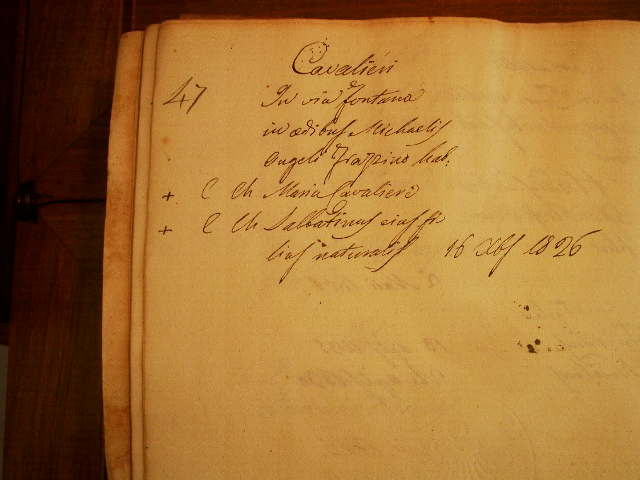 Cavalieri
47 In via fontana
in ædibus Michaelis
Angeli Frazzino hab.
+ C Ch Maria Cavalieri
+ C Ch Sabbatinus eius fi
lius naturalis 16 Xbṣ 1826